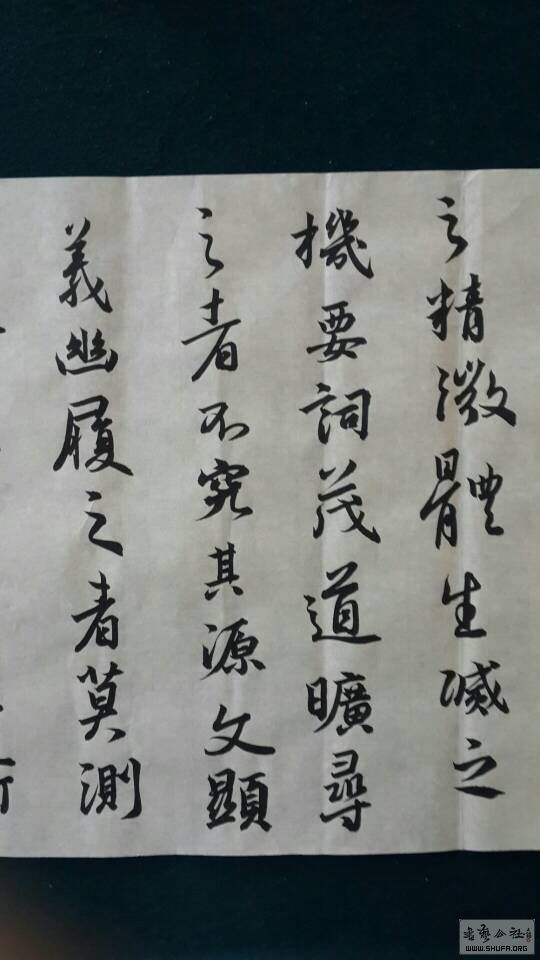 之精微體生滅之
機要詞茂道曠尋
之者不究其源文顯
義幽履之者莫測
WWW.SHUFA.ORG